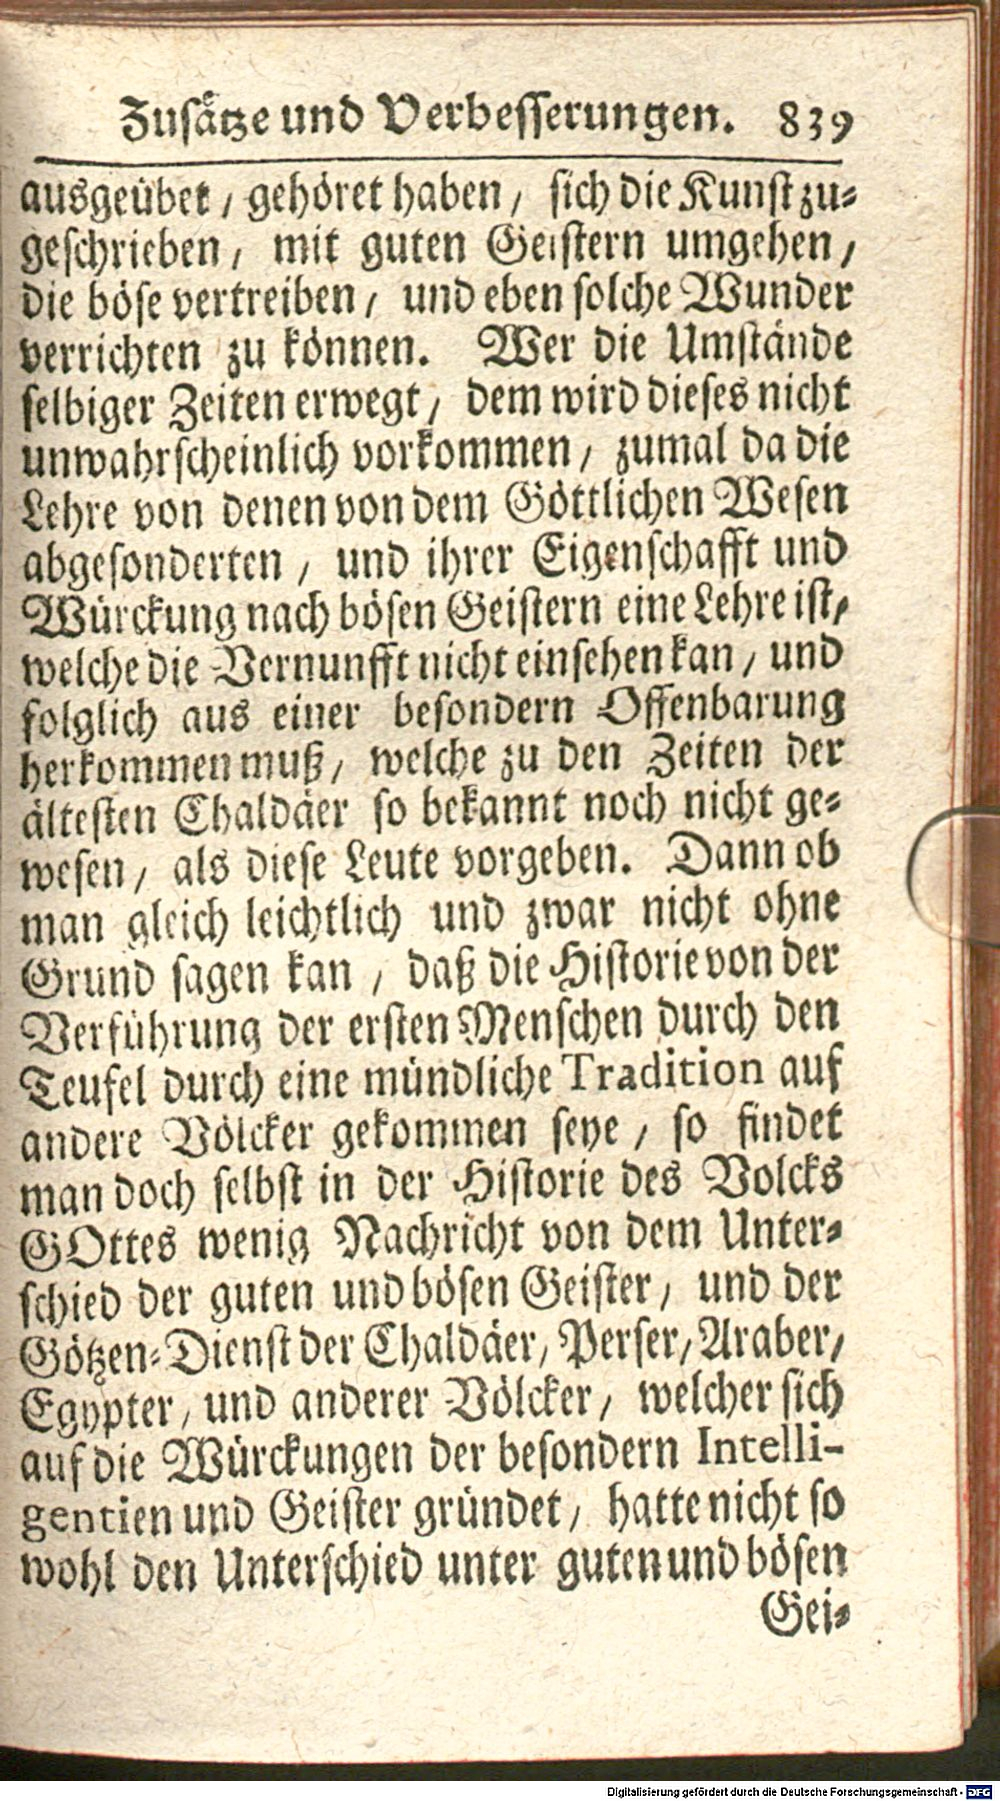 Zusätze und Verbesserungen. 839
ausgeübet / gehöret haben / sich die Kunst zu-
geschrieben / mit guten Geistern umgehen /
die böse vertreiben / und eben solche Wunder
verrichten zu können. Wer die Umstände
selbiger Zeiten erwegt / dem wird dieses nicht
unwahrscheinlich vorkommen / zumal da die
Lehre von denen von dem Göttlichen Wesen
abgesonderten / und ihrer Eigenschafft und
Würckung nach bösen Geistern eine Lehre ist /
welche die Vernunfft nicht einsehen kan / und
folglich aus einer besondern Offenbarung
herkommen muß / welche zu den Zeiten der
ältesten Chaldäer so bekannt noch nicht ge-
wesen / als diese Leute vorgeben. Dann ob
man gleich leichtlich und zwar nicht ohne
Grund sagen kan / daß die Historie von der
Verführung der ersten Menschen durch den
Teufel durch eine mündliche Tradition auf
andere Völcker gekommen seye / so findet
man doch selbst in der Historie des Volcks
GOttes wenig Nachricht von dem Unter-
schied der guten und bösen Geister / und der
Götzen-Dienst der Chaldäer / Perser / Araber /
Egypter / und anderer Völcker / welcher sich
auf die Würckungen der besondern Intelli-
gentien und Geister gründet / hatte nicht so
wohl den Unterschied unter guten und bösen
Gei-
Digitalisierung gefördert durch die Deutsche Forschungsgemeinschaft - DFG